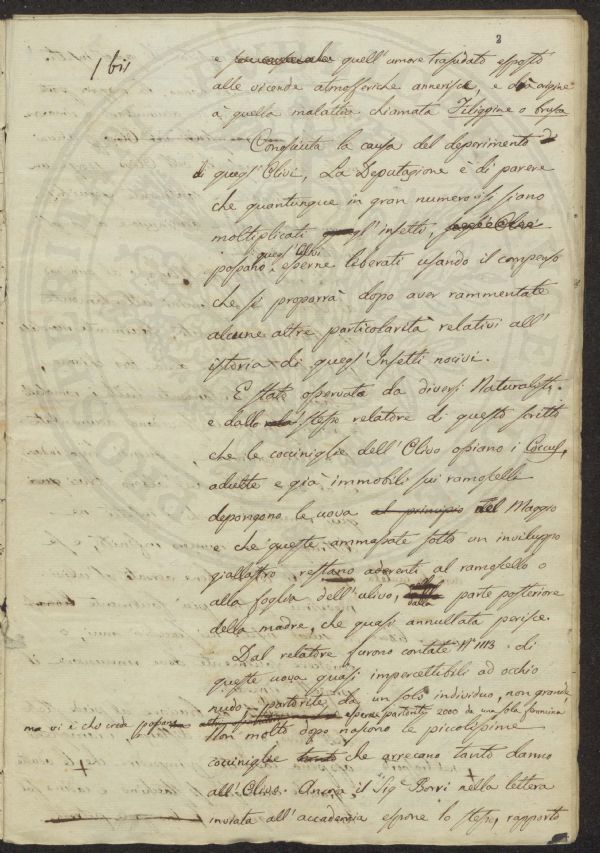 2
1 bis
e quell'umore trasudato esposto
alle vicende atmosferiche annerisce, e dà origine
à quella malattia chiamata Filiggine o brusa
Conosciuta la causa del deperimento
di quegl'Olivi, La Deputazione è di parere
che quantunque in gran numero si siano
moltiplicati gl'insetti,
quegl'Olivi
possano esserne liberati usando il compenso
che si proporrà dopo aver rammentate
alcune altre particolarità relativi all'
istoria di quegl'Insetti nocivi.
E stato osservato da diversi Naturalisti,
e dallo stesso relatore di questo scritto
che le cocciniglie dell'Olivo ossiano i Coccus,
adulte e già immobili sui ramoscelli
depongono le uova al principio del Maggio
e che queste ammassate sotto un inviluppo
giallastro restano aderenti al ramoscello o
alla foglia dell'ulivo, dalla parte posteriore
della madre, che quasi annullata perisce.
Dal relatore furono contate N° 1113 di
queste uova quasi impercettibili ad occhio
nudo partorite da un solo individuo, non grande,
ma vi è che crede possano esserne partorite 2000 da una sola femmina
Non molto dopo nascono le piccolissime
cocciniglie che arrecano tanto danno
all'Olivo. Ancora il Sig.r Borri nella lettera
inviata all'accademia espone lo stesso, rapporto